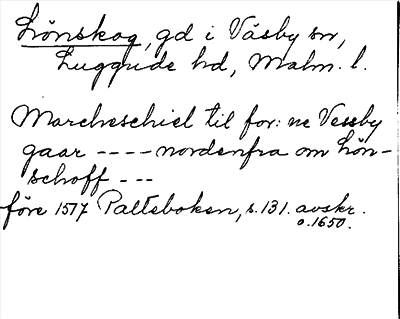 Lönskog, gd i Väsby sn,
Luggude hd, Malm. l.
Marcheschiel til for: ne Vessby
gaar ---- nordenfra om Lön-
schoff ---
före 1517 Palteboken, s. 131. avskr.
o. 1650.